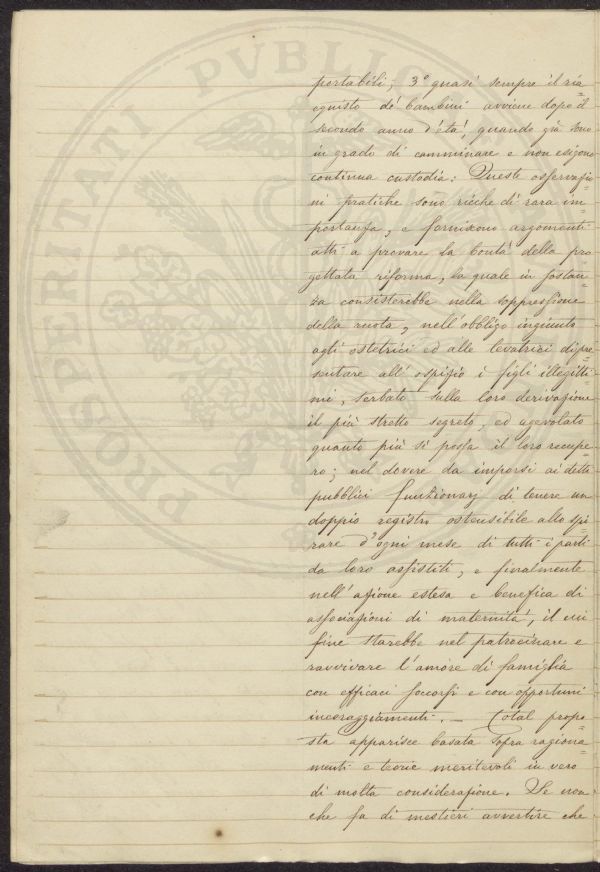 PROSPERITATI PVBLICAE
portabili; 3º quasi sempre il ria=
cquisto de' bambini avviene dopo il
secondo anno d'età, quando già sono
in grado di camminare e non esigono
continua custodia: Queste osservazio=
ni pratiche sono ricche di rara im=
portanza, e forniscono argomenti
atti a provare la bontà della pro=
gettata riforma, la quale in sostan=
za consisterebbe nella soppressione
della ruota, nell'obbligo ingiunto
agli ostetrici ed alle levatrici di pre=
sentare all'ospizio i figli illegitti=
mi, serbato sulla loro derivazione
il più stretto segreto, ed agevolato
quanto più si possa il loro recupe=
ro; nel dovere da imporsi ai detti
pubblici funzionarj di tenere un
doppio registro ostensibile allo spi=
rare d'ogni mese di tutti i parti
da loro assistiti, e finalmente
nell'azione estesa e benefica di
associazioni di maternità, il cui
fine starebbe nel patrocinare e
ravvivare l'amore di famiglia
con efficaci soccorsi e con opportuni
incoraggiamenti. — Cotal propo=
sta apparisce basata sopra ragiona=
menti e teorie meritevoli in vero
di molta considerazione. Se non
che fa di mestieri avvertire che